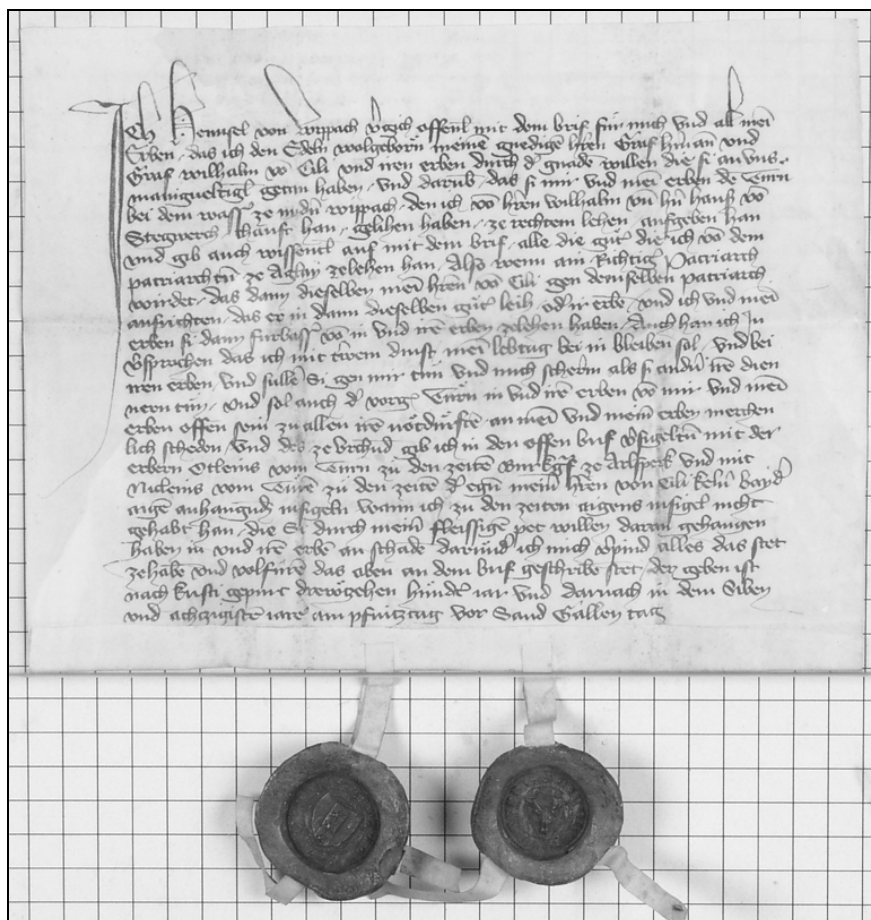 Ich Hennsel von Wippach vgich offenl mit dem brif fur mich vnd all mei
Erben, das ich den Edeln wolgeborn meine gnedigen hren Graf hman vnd
Graf wilhalm vo Cili vnd iren erben durch d gnade willen die si an vns
manigueltigl getan haben, vnd darub, das si mir vnd mei erben de Turn
bei dem wass ze nidn wippach, den ich vo hren wilhalm vn hn hans vo
Stegwerch chauft han, gelihen haben, ze rechtem lehen, aufgeben han
vnd gib auch wissentl auf mit dem brif, alle die gut die ich vo dem
patriarchtun ze Aglay ze lehen han, Also wenn ain Richtig Patriarch
wirdet, das dann dieselben mein hren vo Cili gen demselben patriarch
ausrichten, das er in dann dieselben gut leih, od ir erbe, vnd ich vnd mei
erben si dann furbass vo in vnd ire erben ze lehen haben, Auch han ich In
vsprochen das ich mit trewem dinst mei lebtag bei in bleiben sol, vnd bei
iren erben, vnd sulle Si gen mir tun vnd mich scherm als si andn ire dien
nern tun, vnd sol auch d vorg Turn in vnd ire erben vo mir vnd mein
erben offen sein zu allen ire notdurfte, an mein vnd meine erben merchen
lich scheden, Vnd des ze vrchund, gib ich in den offen brif vsigelten mit der
erbern Otleins vom Turn zu den zeite Burkgf ze Arlsperk vnd mit
Nicleins vom Turn zu den zeite d egn mein hren von Cili kelne bayd
aige anhangund insigeln wann ich zu den zeiten aigens insigel nicht
gehabt han, die Si durch meine fleissige pet willen daran gehangen
haben in vnd ire erbe an schade, darund ich mich vpind alles das stet
ze habe vnd volfure das oben an dem brif geschribe stet, der geben ist
nach kristi gepurt drewzehen hundt iar vnd darnach in dem Siben
vnd achzigiste iare am pfincztag vor Sand Gallen tag